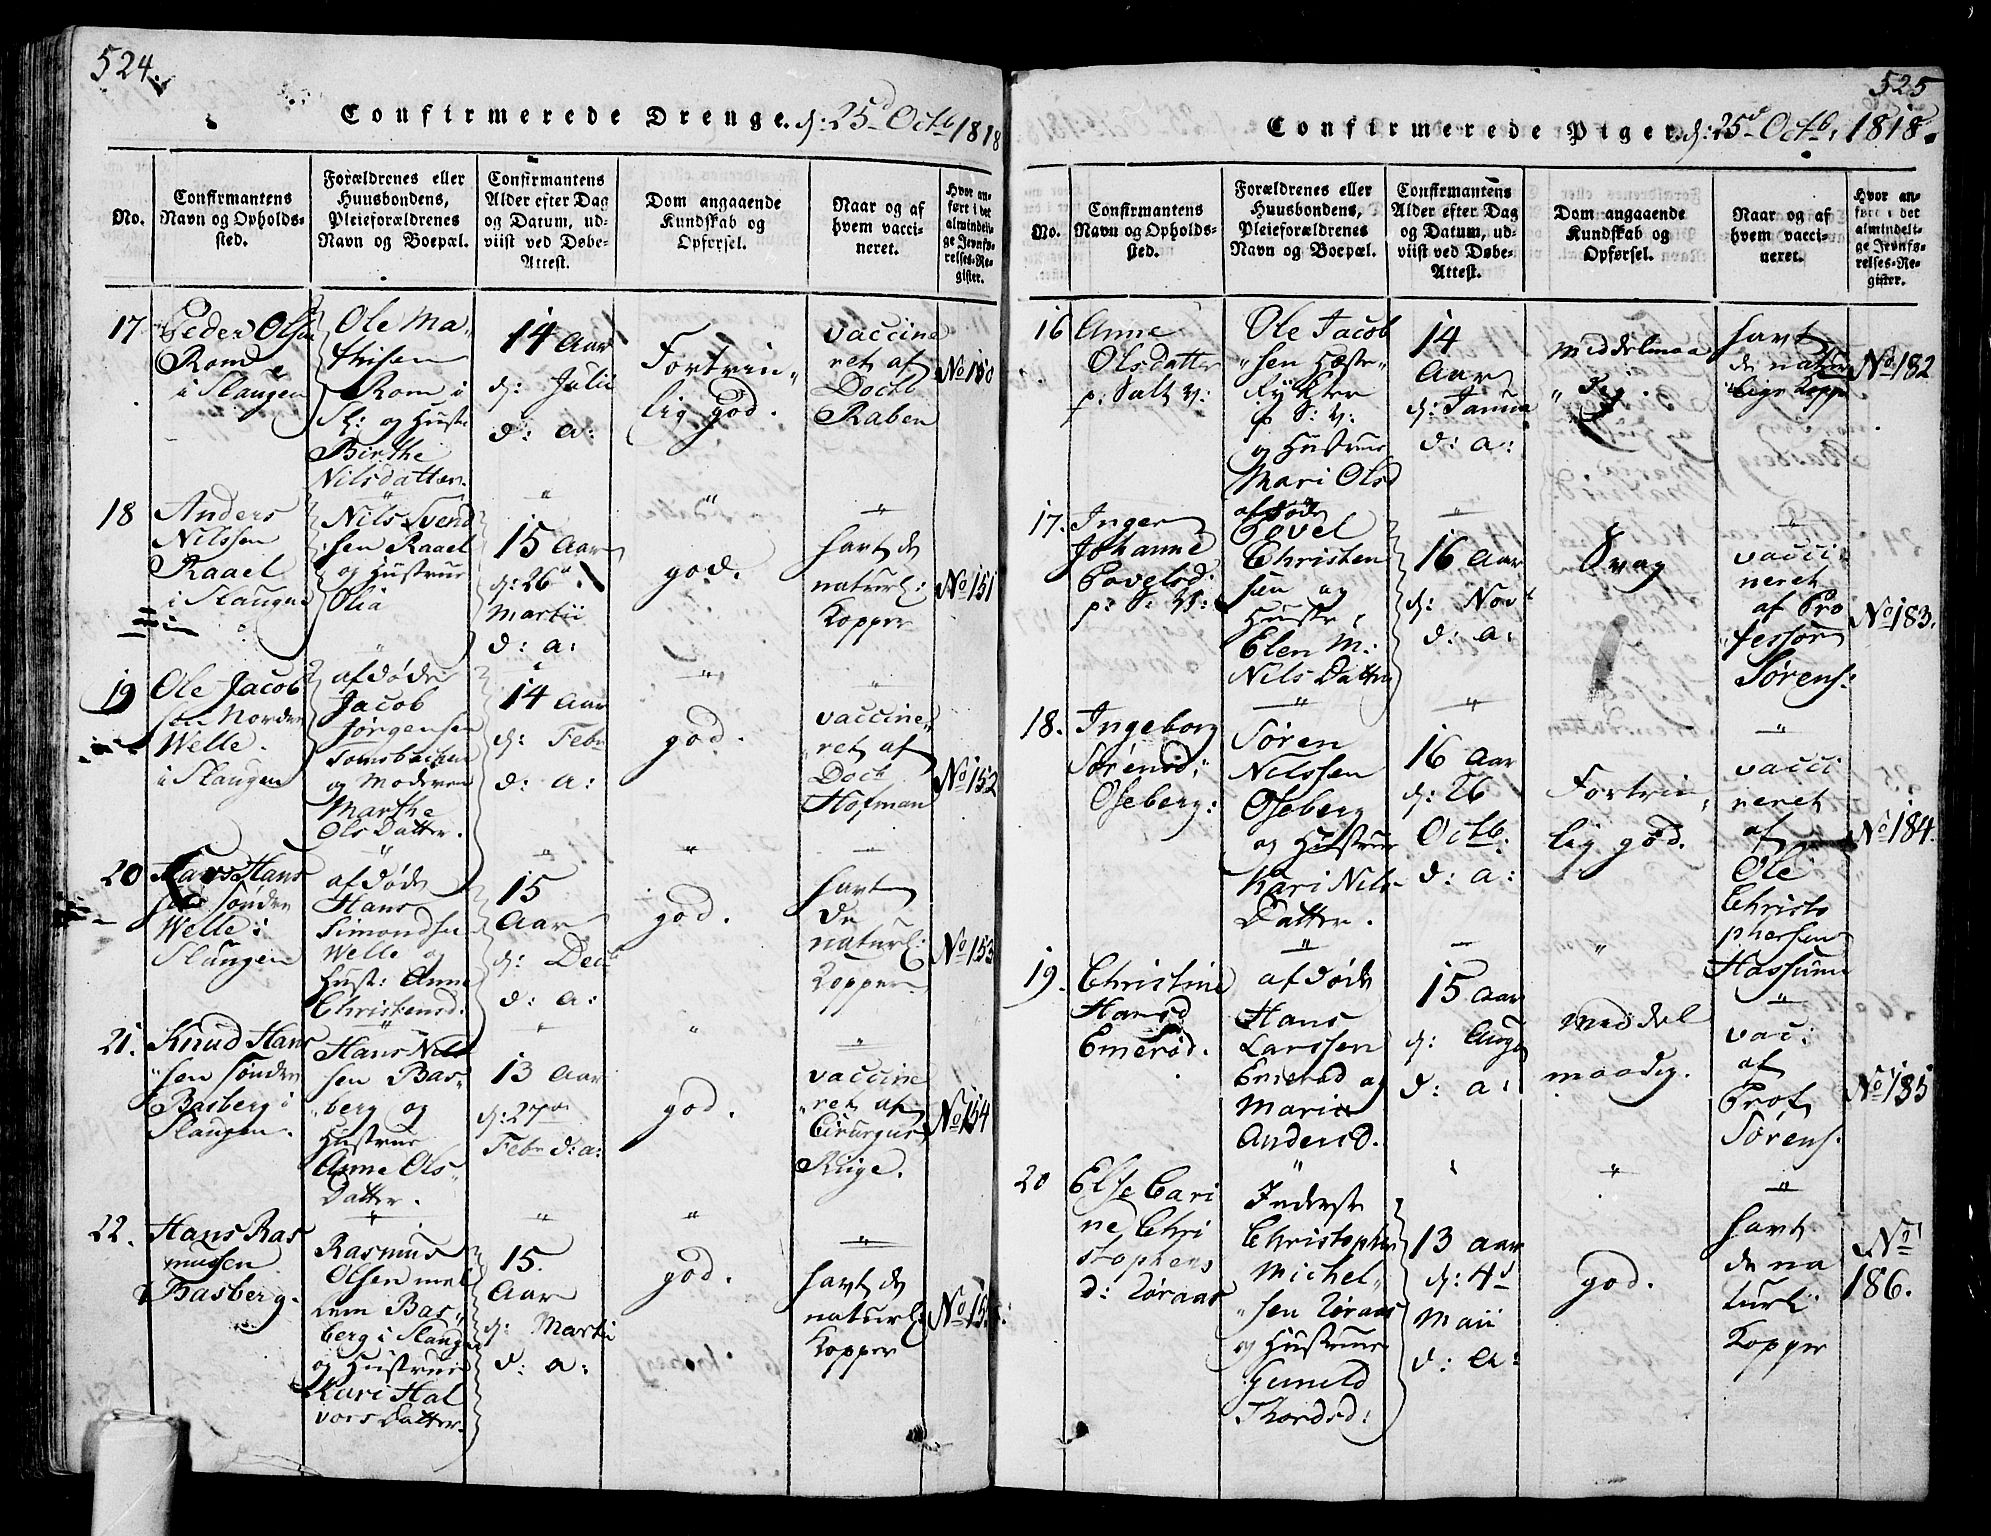 524.
Confirmerede Drenge. d: 25d Octb 1818
No.
Confirmantens
Navn og Opholds-
sted.
Forældrenes eller
Huusbondens,
Pleieforældrenes
Navn og Boepæl.
Confirmantens
Alder efter Dag
og Datum, ud-
viist ved Døbe-
Attest.
Dom angaaende
Kundskab og
Opførsel.
Naar og af
hvem vacci-
neret.
Hvor an-
ført i det
almindeli-
ge Jevnfø-
relses-Re-
gister.
17
Peder Olsen
Rom
i Slaugen
Ole Ma-
thisen
Rom i
Sl: og Hustr
Birthe
Nilsdatter.
14 Aar
d: Julii
d: a:
Fortrin„
lig god.
vaccine
ret af
Doct
Raben
No 150
18
Anders
Nilssen
Raael
i Slaugen
Nils Svend
sen Raael
og Hustrue
Olia
15 Aar
d: 26
Martii
d: a:
god.
havt de
naturl:
Kopper
No 151
19
Ole Jacob
sen Nordre
Welle.
i Slaugen
afdøde
Jacob
Jørgensen
Tomsbachen
og Moderen
Marthe
Ols Datter.
14 Aar
d: Febr
d: a:
god.
vaccine„
ret af
Doct
Hofman
No 152
20
Lars Hans
sen Sønder
Welle i
Slaugen
afdøde
Hans
Simondsen
Welle og
Hust: Anne
Christensd.
15
Aar
d: Decb
d: a:
god.
havt
de
naturl:
Kopper
No 153
21.
Knud Hans
„sen Sønder
Basberg i
Slaugen.
Hans Nils
sen Bas„
„berg og
Hustrue
Anne Ols„
Datter.
13 Aar
d: 27de
Febr d: a:
god.
vaccine
„ret af
Cirurgus
Ruge.
No 154
22.
Hans Ras
mussen
Basberg.
Rasmus
Olsen mel
lem Bas„
berg i Slaugen
og Hustrue
Kari Hal
vors Datter.
15.
Aar
d: Martii
d: a:
god.
havt de
naturl:
Kopper
525
Confirmerede Piger. d: 25d Octb, 1818.
No.
Confirmantens
Navn og Opholds-
sted.
Forældrenes eller
Huusbondens,
Pleieforældrenes
Navn og Boepæl.
Confirmantens
Alder efter Dag
og Datum, ud-
viist ved Døbe-
Attest.
Dom angaaende
Kundskab og
Opførsel.
Naar og af
hvem vacci-
neret.
Hvor an-
ført i det
almindeli-
ge Jevnfø-
relses-Re-
gister.
16
Anne
Olsdatter
p: Salt V:
Ole Jacob
„sen Hæste„
Rykter
p S: V:
og Hustrue
Mari Olsd
14
Aar
d: Janua
d: a:
Middelmaa
„dig.
havt
de natur
„lige Kopp
No 182
17.
Inger
Johanne
Povelsd:
p: S: V:
afdøde
Povel
Christen
sen og
Hustr:
Elen M:
Nils Datter
16 Aar
d: Novb
d: a:
Svag
vacci
neret
af Pro
„fessor
Sørens:
No 183.
18.
Ingeborg
Sørensd:
Oseberg:
Søren
Nilssen
Oseberg
og Hustrue
Kari Nils
Datter.
16 Aar
d: 26
Octb:
d: a:
Fortrin„
lig god.
vacci
neret
af
Ole
Christo
phersen
Hassum
No 184.
19.
Christine
Hansd
Emerød.
afdøde
Hans
Larssen
Emerød og
Maria
Andersd.
15 Aar
d: Augt
d: a:
Meddel
maadig.
vac:
af
Prof
Sørens:
No 185
20
Else Cari
ne Chri
stophers
d: Røraas
Inderst
Christopher
Michel„
„sen Røraas
og Hustrue
Gunild
Thordsd:
13 Aar
d: 4d
Maii
d: a:
god.
havt
de na
turl:
Kopper
No
186.